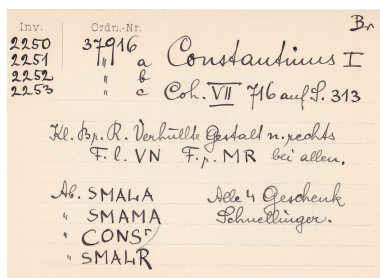 Inv. Ordn.-Nr. Br
2250 37916 Constantinus I
2251 " a
2252 " b
2253 " c Coh. VII 716 auf S. 313
Kl. Br. R. Verhüllte Gestalt n. rechts
F. l. VN F. r. MR bei allen.
Ab. SMALA Alle 4 Geschenk
" SMAMA Schnellinger.
" CONS
" SMALR